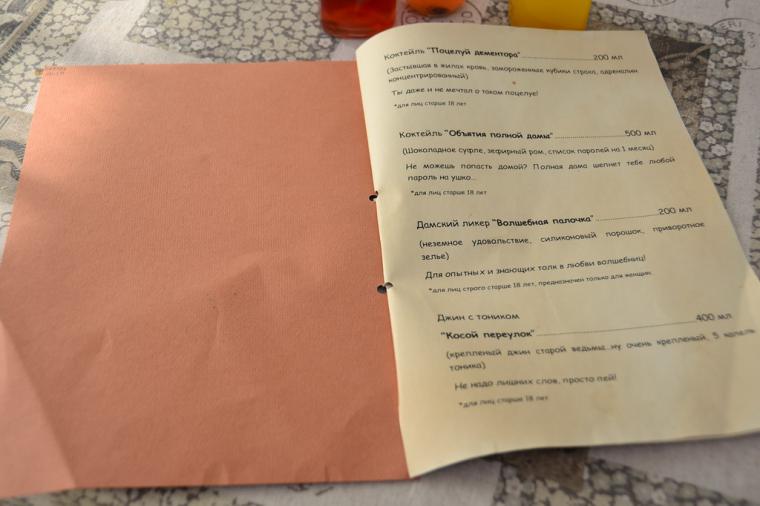 Коктейль "Поцелуй дементора" 200 мл
(Застывшая в жилах кровь, замороженные кубики страха, адреналин
концентрированный)
Ты даже и не мечтал о таком поцелуе!
*для лиц старше 18 лет
Коктейль "Объятия полной дамы" 500 мл
(Шоколадное суфле, зефирный ром, список паролей на 1 месяц)
Не можешь попасть домой? Полная дама шепнет тебе любой
пароль на ушко...
*для лиц старше 18 лет
Дамский ликер "Волшебная палочка" 200 мл
(неземное удовольствие, силиконовый порошок, приворотное
зелье)
Для опытных и знающих толк в любви волшебниц!
*для лиц строго старше 18 лет, предназначен только для женщин.
Джин с тоником
"Косой переулок" 400 мл
(крепленый джин старой ведьмы...ну очень крепленый, 5 капель
тоника)
Не надо лишних слов, просто пей!
*для лиц старше 18 лет